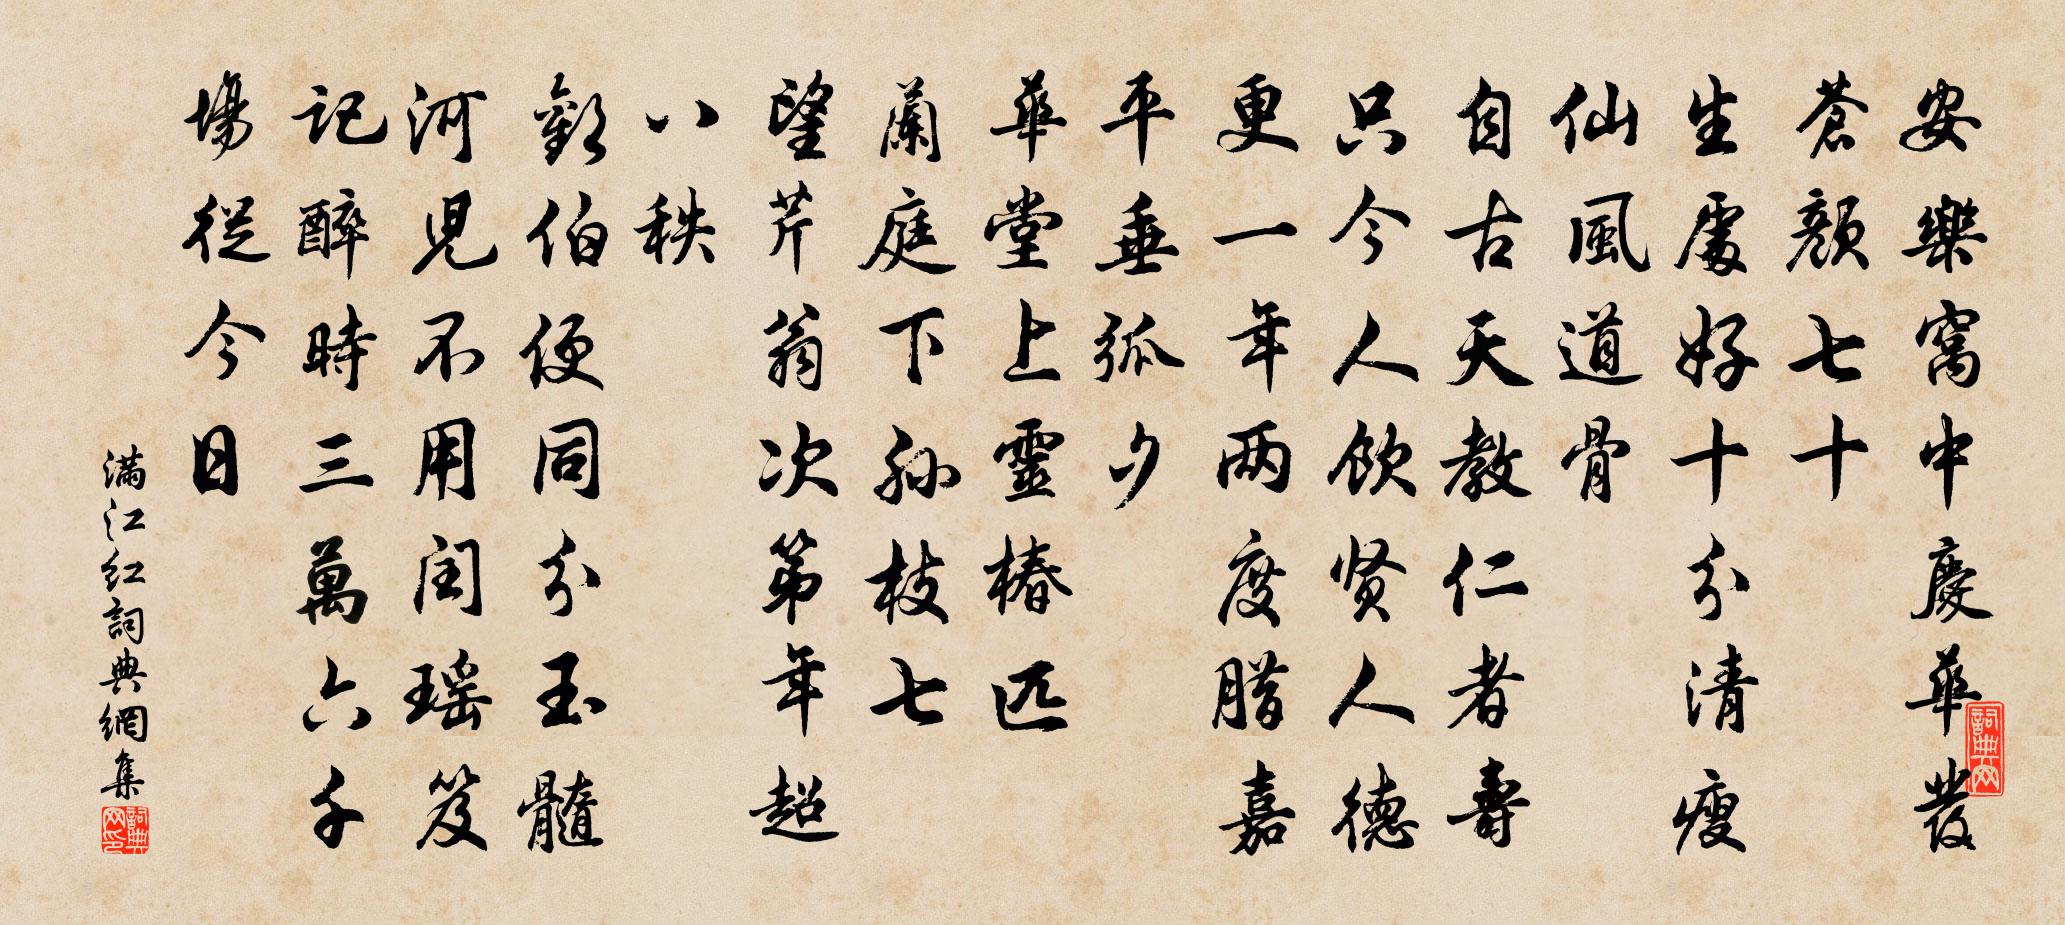 安樂窩中慶華髮
蒼顏七十
生處好十分清瘦
仙風道骨
自古天教仁者壽
只今人飲贤人德
更一年两度腊嘉
平垂弧夕
華堂上靈椿匹
蘭庭下孙枝七
望芹翁次第年超
八秩
歡伯便同分玉髓
河兒不用闰瑶笈
記醉時三萬六千
場從今日
满江红詞典網集
詞典网
詞典网印